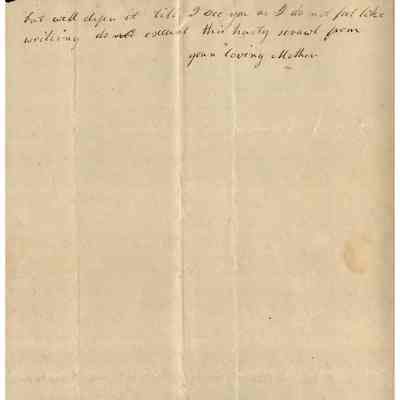 but will defer it till I see you as I do not feel like
writing do not exspect this hasty scrawl from
your loving Mother